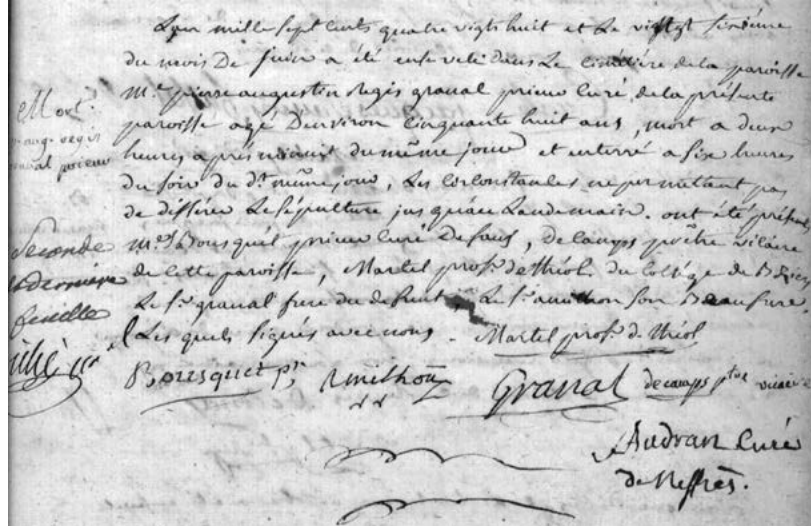 L'an mille sept cents quatre vigts huit et le vingt
du mois De juin a été enseveli dans Le cimetière de la paroisse
Mort.
Mre pierre augustin Regis granal prieur Curé de la présente
aug. regis
paroisse agé D'environ cinquante huit ans, mort a deux
granal prieur
heures apres minuit du même jour et enterré a six heures
du soir du dt. même jour, Les circonstances ne permettent pas
de différer La sépulture jusqu'au Landemain. ont été présents
Seconde
mre Bousquet prieur curé De fous, de camps prêtre vicaire
et derniere
de cette paroisse, Martel profr. de théol. du College de Beziers
feuille
Le sr. granal frere du defunt Le sr. amilhon son Beaufrere
Les quels signés avec nous. Martel profr. de théol
Bousquet pr. Amilhon Granal decamps ptre vicaire
Audran Curé
de Neffies.